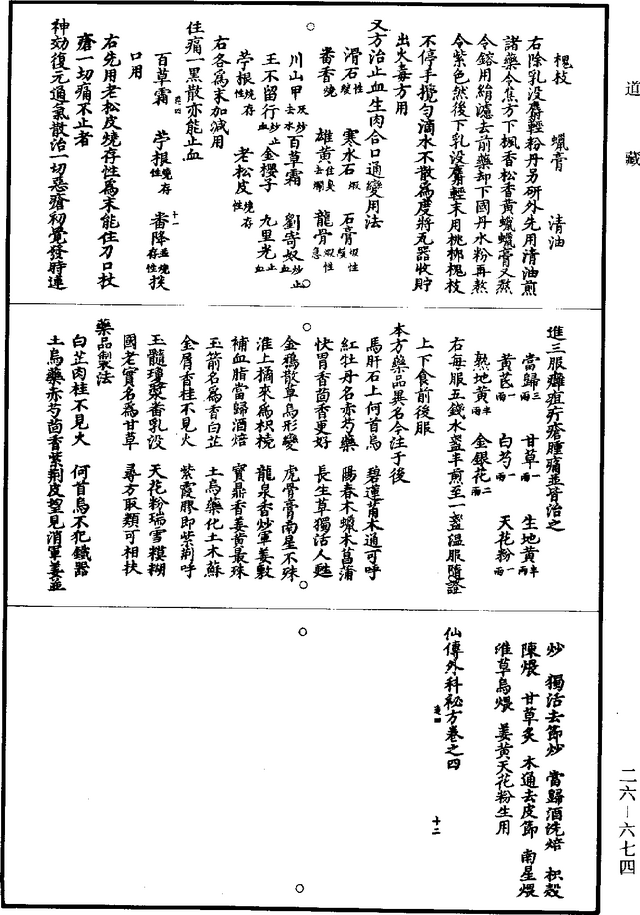 道藏
槐枝 蠟膏 清油
右除乳没麝輕粉丹另研外先用清油煎
諸藥令焦方下楓香松香黄蠟蠟膏又熬
令鎔用絹濾去前藥却下國丹水粉再熬
令紫色然後下乳没麝輕末用桃柳槐枝
不停手攪勻滴水不散為度將瓦器收貯
出火毒方用
又方治止血生肉合口通變用法
滑石 寒水石煅 石膏
番香燒 雄黄 龍骨
川山甲 百草霜 劉寄奴炒止血
王不留行炒止血 金櫻子 九里光止血
苧根燒存性 老松皮燒存性
右各為末加減用
住痛一黑散亦能止血
百草霜 苧根燒存性 番降
口用
右先用老松皮燒存性為末能住刀口杖
瘡一切痛不止者
神効復元通氣散治一切惡瘡初覺發時連
進三服癰疽疔瘡腫痛並皆治之
當歸三兩 甘草一兩 生地黄半兩
黄芪一兩 白芍一兩 天花粉一兩
熟地黄半兩 金銀花二兩
右每服五錢水盞半煎至一盞温服隨證
上下食前後服
本方藥品異名今注于後
馬肝石上何首烏 碧蓮蒲木通可呼
紅牡丹名赤芍藥 賜春木蠟木菖蒲
快胃香茴香更好 長生草獨活人甦
金鴉散草烏形變 虎骨膏南星不殊
淮上摘來為枳橈 龍泉香炒軍姜敷
補血脂當歸酒焙 寶鼎香姜黄最殊
玉箭名為香白芷 土烏藥化土木蘇
金屑香桂不見火 紫霞膠即紫荆呼
玉髓瓊漿番乳没 天花粉瑞雪糢糊
國老實名為甘草 尋方取類可相扶
藥品製法
白芷肉桂不見火 何首烏不犯鐵器
土烏藥赤芍茴香紫荆皮望見消軍姜並
炒 獨活去節炒 當歸酒洗焙 枳殻
陳煨 甘草炙 木通去皮節 南星煨
唯草烏煨 姜黄天花粉生用
仙傳外科秘方卷之四
十二
二六—六七四